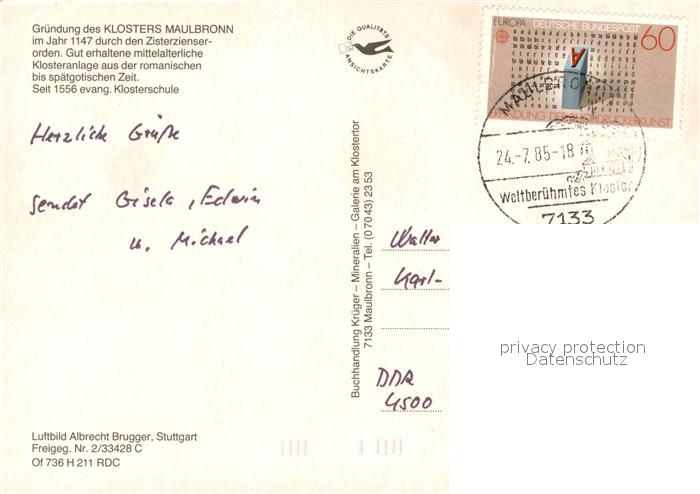 Gründung des KLOSTERS MAULBRONN
im Jahr 1147 durch den Zisterzienser-
orden. Gut erhaltene mittelalterliche
Klosteranlage aus der romanischen
bis spätgotischen Zeit.
Seit 1556 evang. Klosterschule
DIE QUALITÄTS
ANSICHTSKARTE
EUROPA DEUTSCHE BUNDESPOST 60
A
ERFINDUNG DER BUCHDRUCKERKUNST
MAULBRONN
24.-7.85-18
Weltberühmtes Kloster
7133
Herzliche Grüße
sendet Gisela, Edwin
u. Michael
Buchhandlung Krüger – Mineralien – Galerie am Klostertor
7133 Maulbronn – Tel. (07043) 2353
Walter
Karl-
DDR
4500
privacy protection
Datenschutz
Luftbild Albrecht Brugger, Stuttgart
Freigeg. Nr. 2/33428 C
Of 736 H 211 RDC